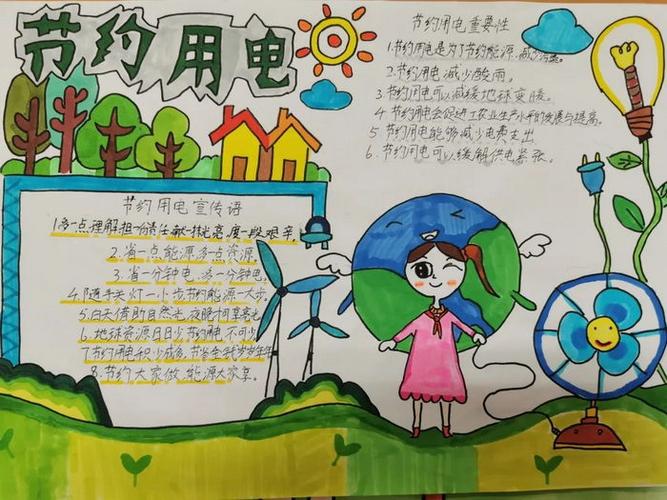 节约用电
节约用电重要性
1.节约用电是为了节约能源,减少污染。
2.节约用电减少酸雨。
3.节约用电可以减缓地球变暖。
4.节约用电会促进工农业生产水平的发展与提高。
5节约用电能够减少电费支出
6.节约用电可以缓解供电紧张。
节约用电宣传语
1.多一点理解,担一份责任,献一抹光亮,度一段艰辛。
2.省一点能源,多一点资源。
3.省一分钟电,多一分钟电。
4.随手关灯一小步节约能源一大步。
5.白天借助自然光,夜晚
6.地球资源日日少节约用电不可少
7节约用电积少成多,节省金钱岁岁年年
8.节约大家做,能源大家享。